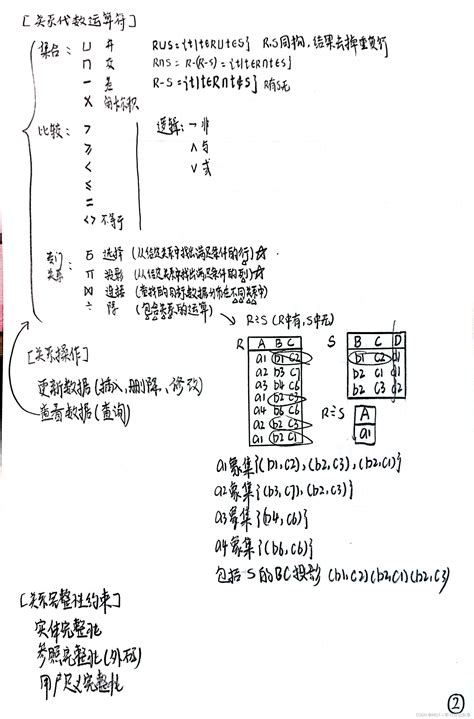 [关系代数运算符]
集合： ∪ 并 R∪S={t|t∈R∪t∈S} R.S同构，结果去掉重复行
∩ 交 R∩S = R-(R-S)={t|t∈R∩t∈S}
— 差 R-S={t|t∈R∩t∉S} R有S无
× 笛卡尔积
比较： > 逻辑：¬ 非
≥ ∧ 与
< ∨ 或
≤
=
<> 不等于
专门 σ 选择 (从给定关系中找出满足条件的行)☆
关系： π 投影 (从给定关系中找出满足条件的列)☆
⋈ 连接 (查找的目标数据分布在不同关系中)
÷ 除 (包含关系的运算)
R÷S (R中有，S中无)
[关系操作]
更新数据(插入、删除、修改)
查看数据(查询)
R A B C
a1 b1 c2
a2 b3 c7
a3 b4 c6
a1 b2 c3
a4 b6 c6
a2 b2 c3
a1 b2 c1
S B C D
b1 c2 d1
b2 c1 d1
b2 c3 d2
R÷S A
a1
a1象集{(b1,c2),(b2,c3),(b2,c1)}
a2象集{(b3,c7),(b2,c3)}
a3象集{(b4,c6)}
a4象集{(b6,c6)}
包括S的BC投影 (b1,c2)(b2,c1)(b2,c3)
[关系完整性约束]
实体完整性
参照完整性(外码)
用户定义完整性
②